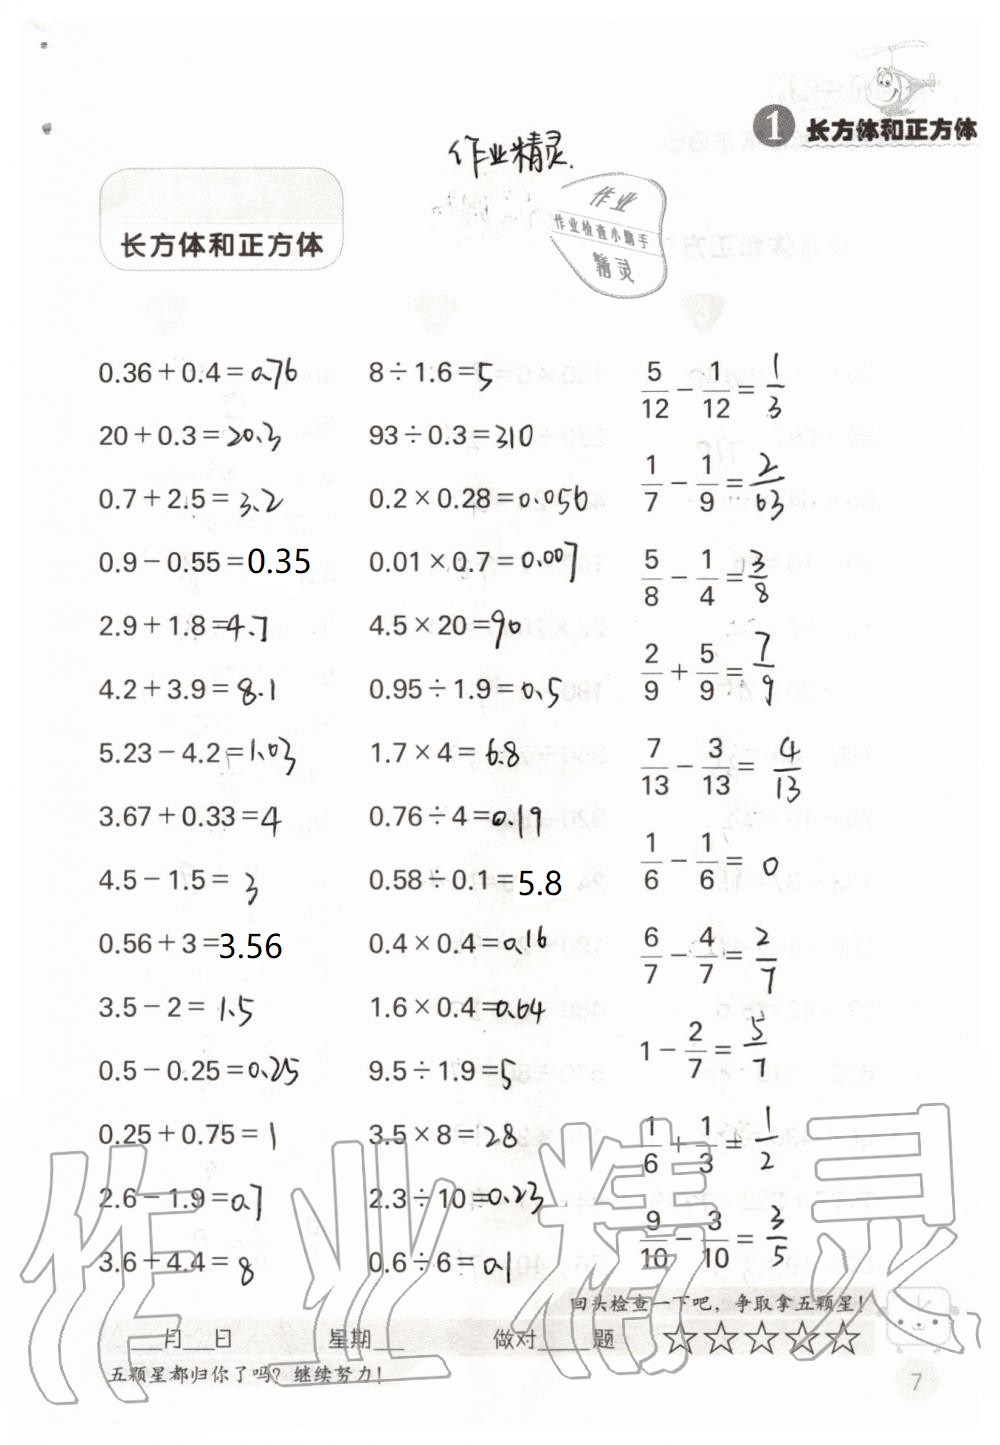 1 长方体和正方体
作业精灵
作业
作业检查小助手
精灵
长方体和正方体
0.36+0.4=0.76
20+0.3=20.3
0.7+2.5=3.2
0.9-0.55=0.35
2.9+1.8=4.7
4.2+3.9=8.1
5.23-4.2=1.03
3.67+0.33=4
4.5-1.5=3
0.56+3=3.56
3.5-2=1.5
0.5-0.25=0.25
0.25+0.75=1
2.6-1.9=0.7
3.6+4.4=8
8÷1.6=5
93÷0.3=310
0.2×0.28=0.056
0.01×0.7=0.007
4.5×20=90
0.95÷1.9=0.5
1.7×4=6.8
0.76÷4=0.19
0.58÷0.1=5.8
0.4×0.4=0.16
1.6×0.4=0.64
9.5÷1.9=5
3.5×8=28
2.3÷10=0.23
0.6÷6=0.1
5/12-1/12=1/3
1/7-1/9=2/63
5/8-1/4=3/8
2/9+5/9=7/9
7/13-3/13=4/13
1/6-1/6=0
6/7-4/7=2/7
1-2/7=5/7
1/6+1/3=1/2
9/10-3/10=3/5
作业精灵
回头检查一下吧，争取拿五颗星！
__月__日 星期__ 做对____题 ☆☆☆☆☆
五颗星都归你了吗？继续努力！
7